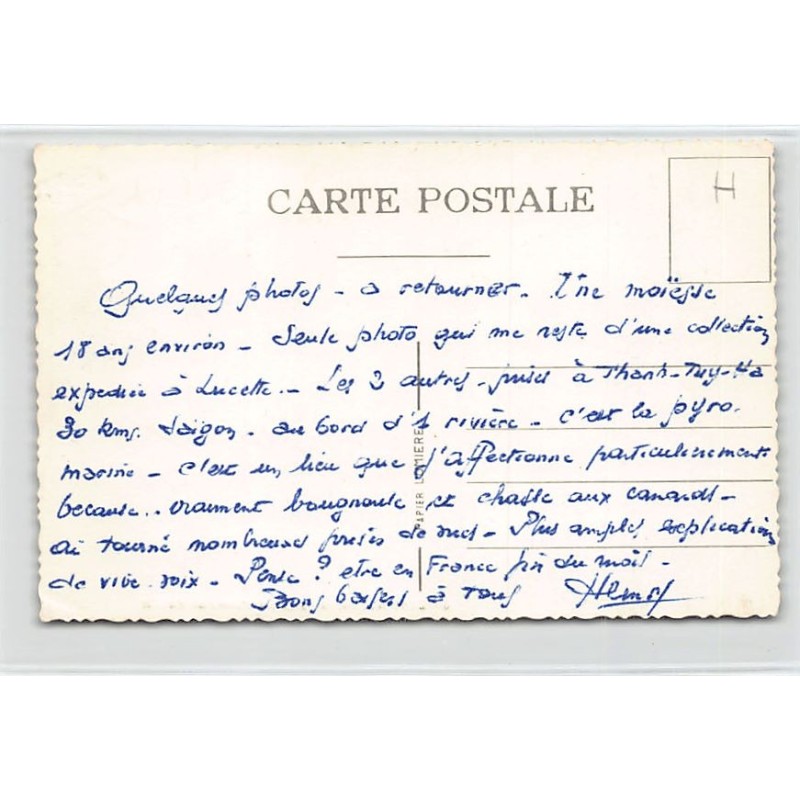 H
CARTE POSTALE
Quelques photos - a retourner. Une moïesse
18 ans environ - Seule photo qui me reste d'une collection
expediée à Lucette.. Les 3 autres - prises à Thanh-Tuy-Ha
30 kms. Saigon. au bord d'1 rivière - c'est la pyro.
marine - c'est un lieu que j'affectionne particulièrement
because.. vraiment et chasse aux canards -
ai tourné nombreuses prises de vues - Plus amples explications
de vive voix - Pense ? etre en France fin du mois -
Bons baisers à tous Henry
PAPIER LUMIERE